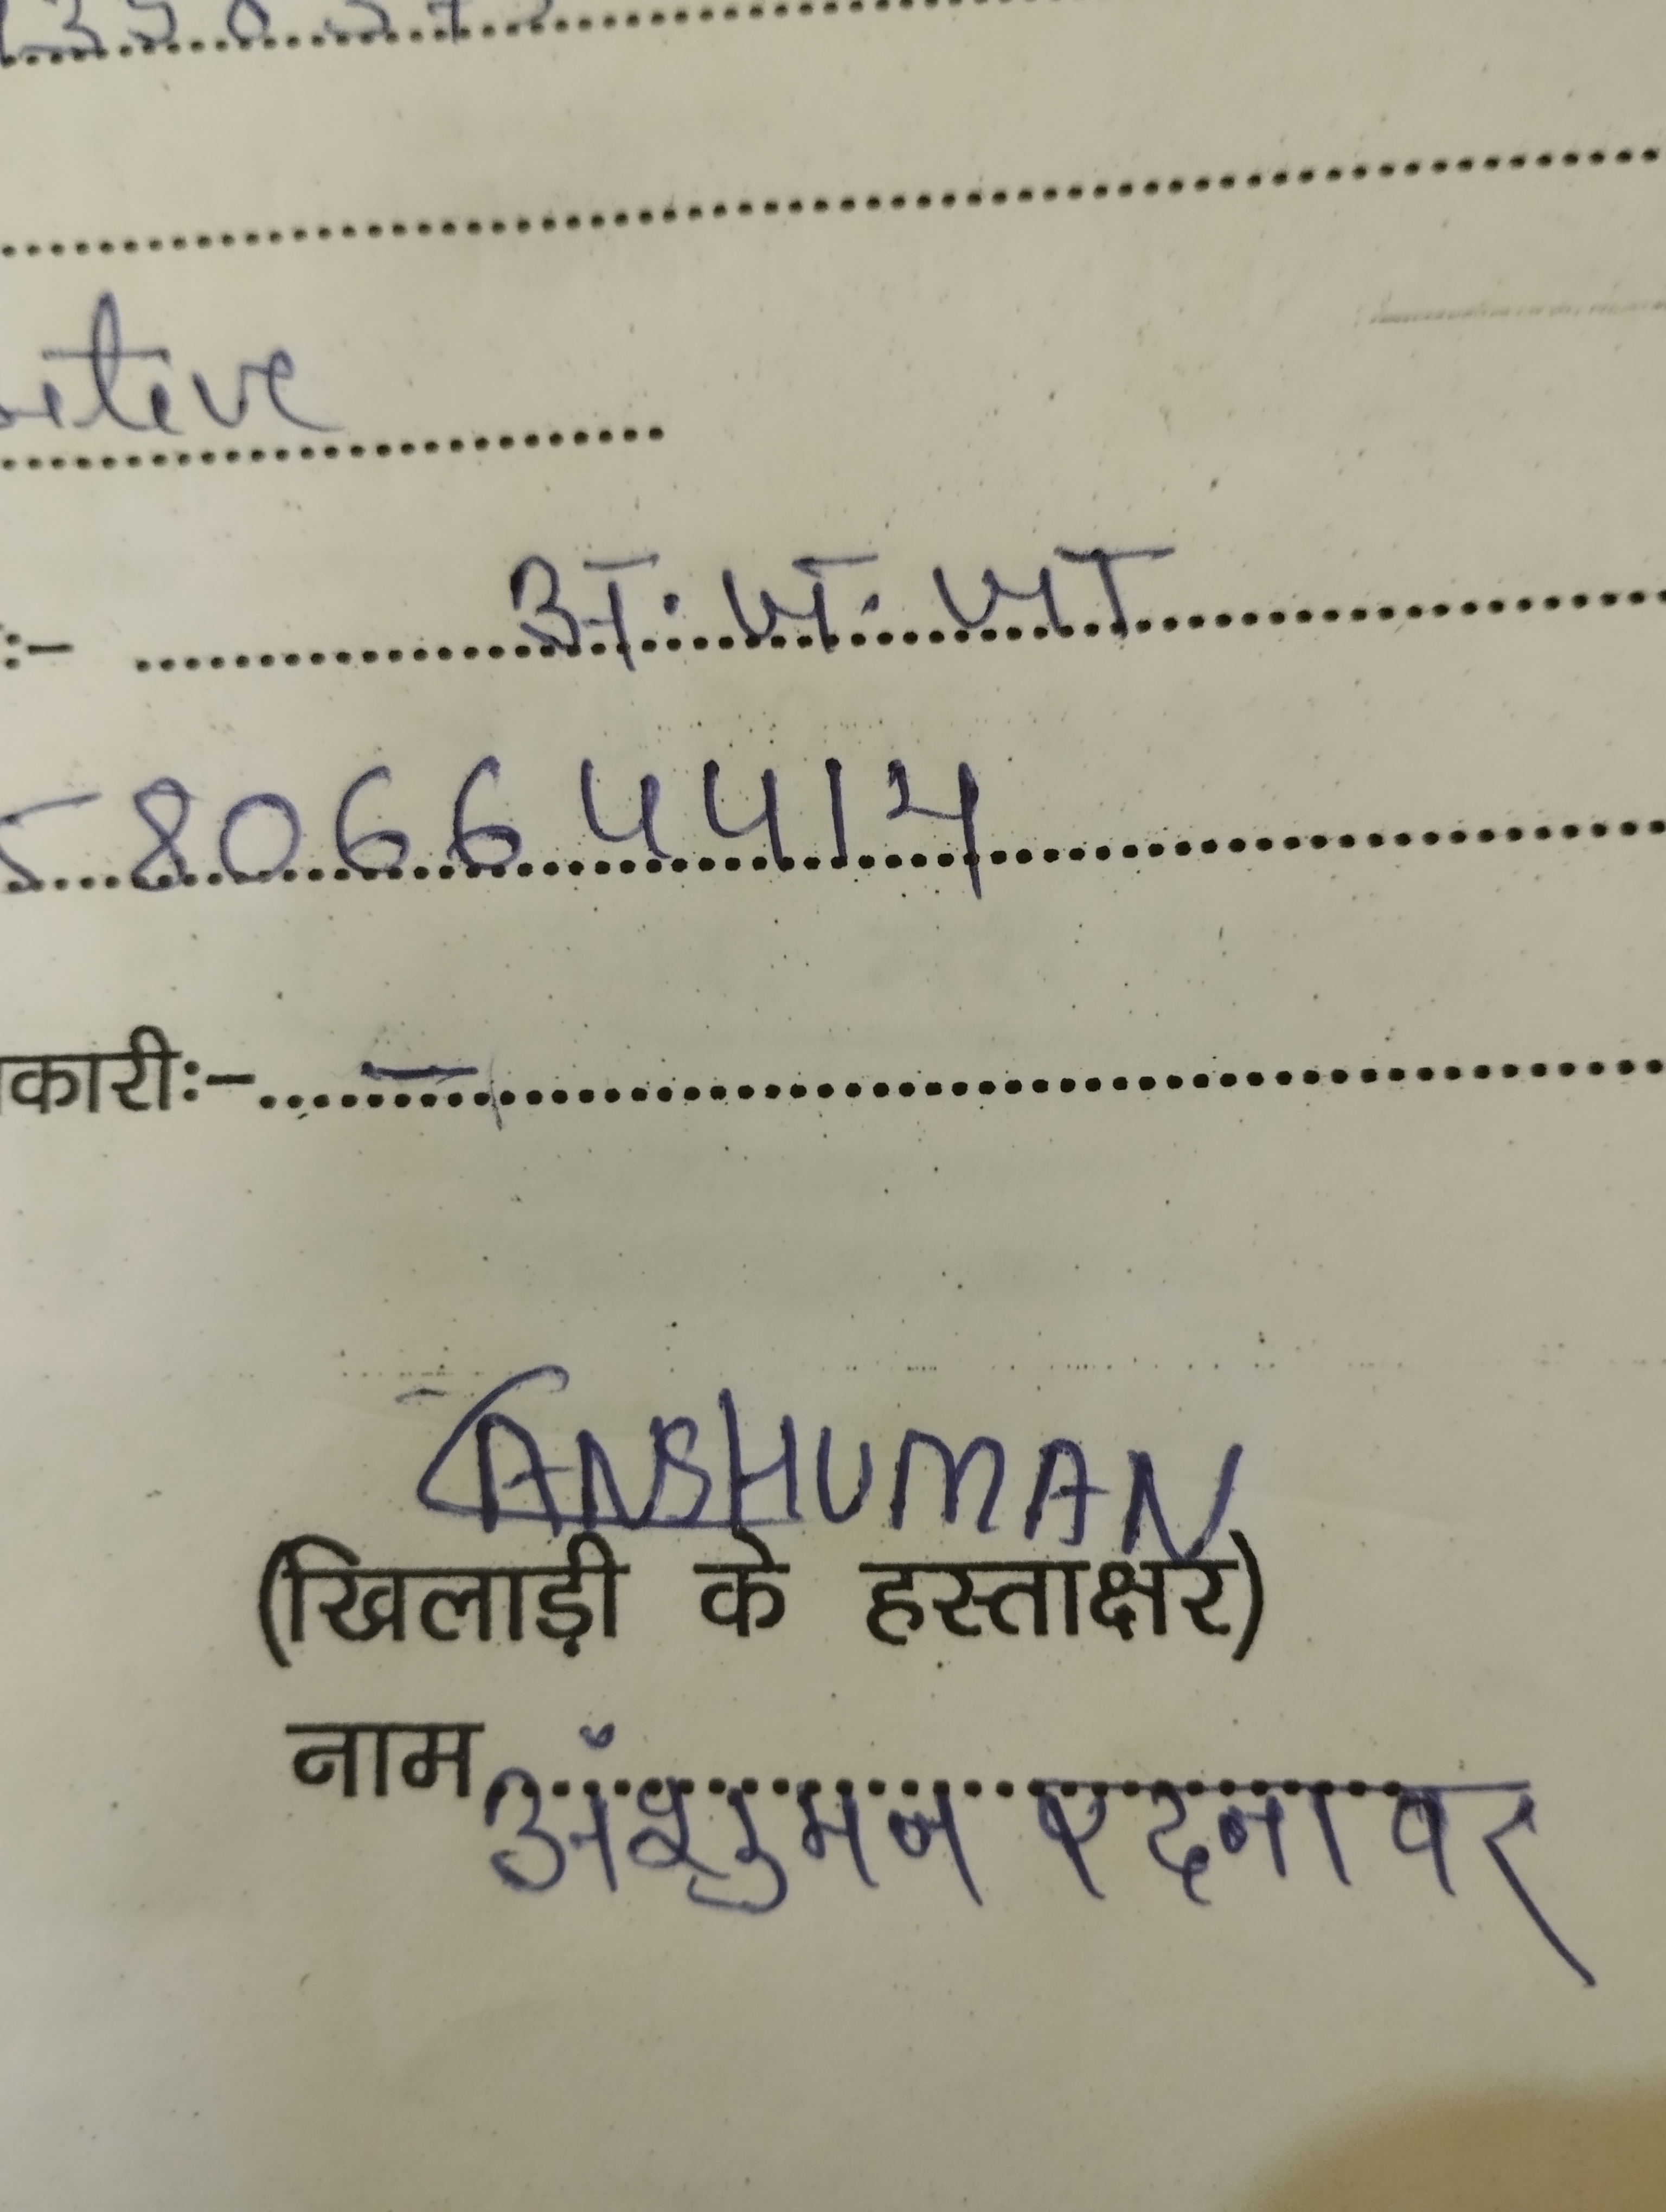 sitive
:- अ. ज. जा
580664414
कारीः-
ANSHUMAN
(खिलाड़ी के हस्ताक्षर)
नाम अँशुमन